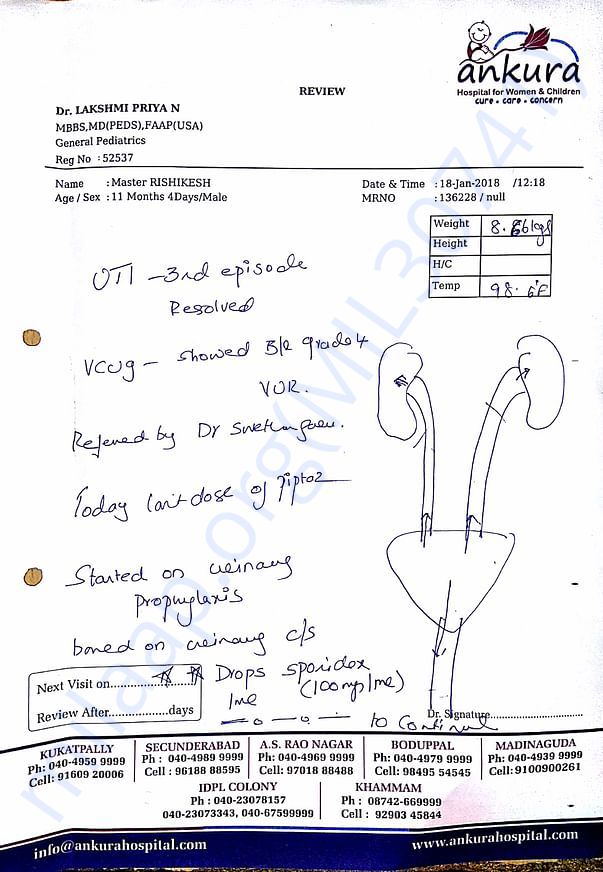 ankura
Hospital for Women & Children
cure . care . concern
REVIEW
Dr. LAKSHMI PRIYA N
MBBS,MD(PEDS),FAAP(USA)
General Pediatrics
Reg No : 52537
Name : Master RISHIKESH
Age / Sex : 11 Months 4Days/Male
Date & Time : 18-Jan-2018 /12:18
MRNO : 136228 / null
Weight 8.66kgs
Height
H/C
Temp 98.6°F
UTI - 3rd episode
Resolved
VCUG - showed B/L grade 4
VUR.
Referred by Dr
Today last dose of piptaz
Started on
Prophylaxis
based on c/s
Drops sporidex
(100mg/ml)
1ml
— o — o — to continue
Next Visit on
Review After days
Dr. Signature
KUKATPALLY
Ph: 040-4959 9999
Cell: 91609 20006
SECUNDERABAD
Ph : 040-4989 9999
Cell : 96188 88595
A.S. RAO NAGAR
Ph: 040-4969 9999
Cell: 97018 88488
BODUPPAL
Ph : 040-4979 9999
Cell: 98495 54545
MADINAGUDA
Ph: 040-4939 9999
Cell:9100900261
IDPL COLONY
Ph : 040-23078157
040-23073343, 040-67599999
KHAMMAM
Ph : 08742-669999
Cell : 92903 45844
info@ankurahospital.com
www.ankurahospital.com
milaap.org(MIL30741)